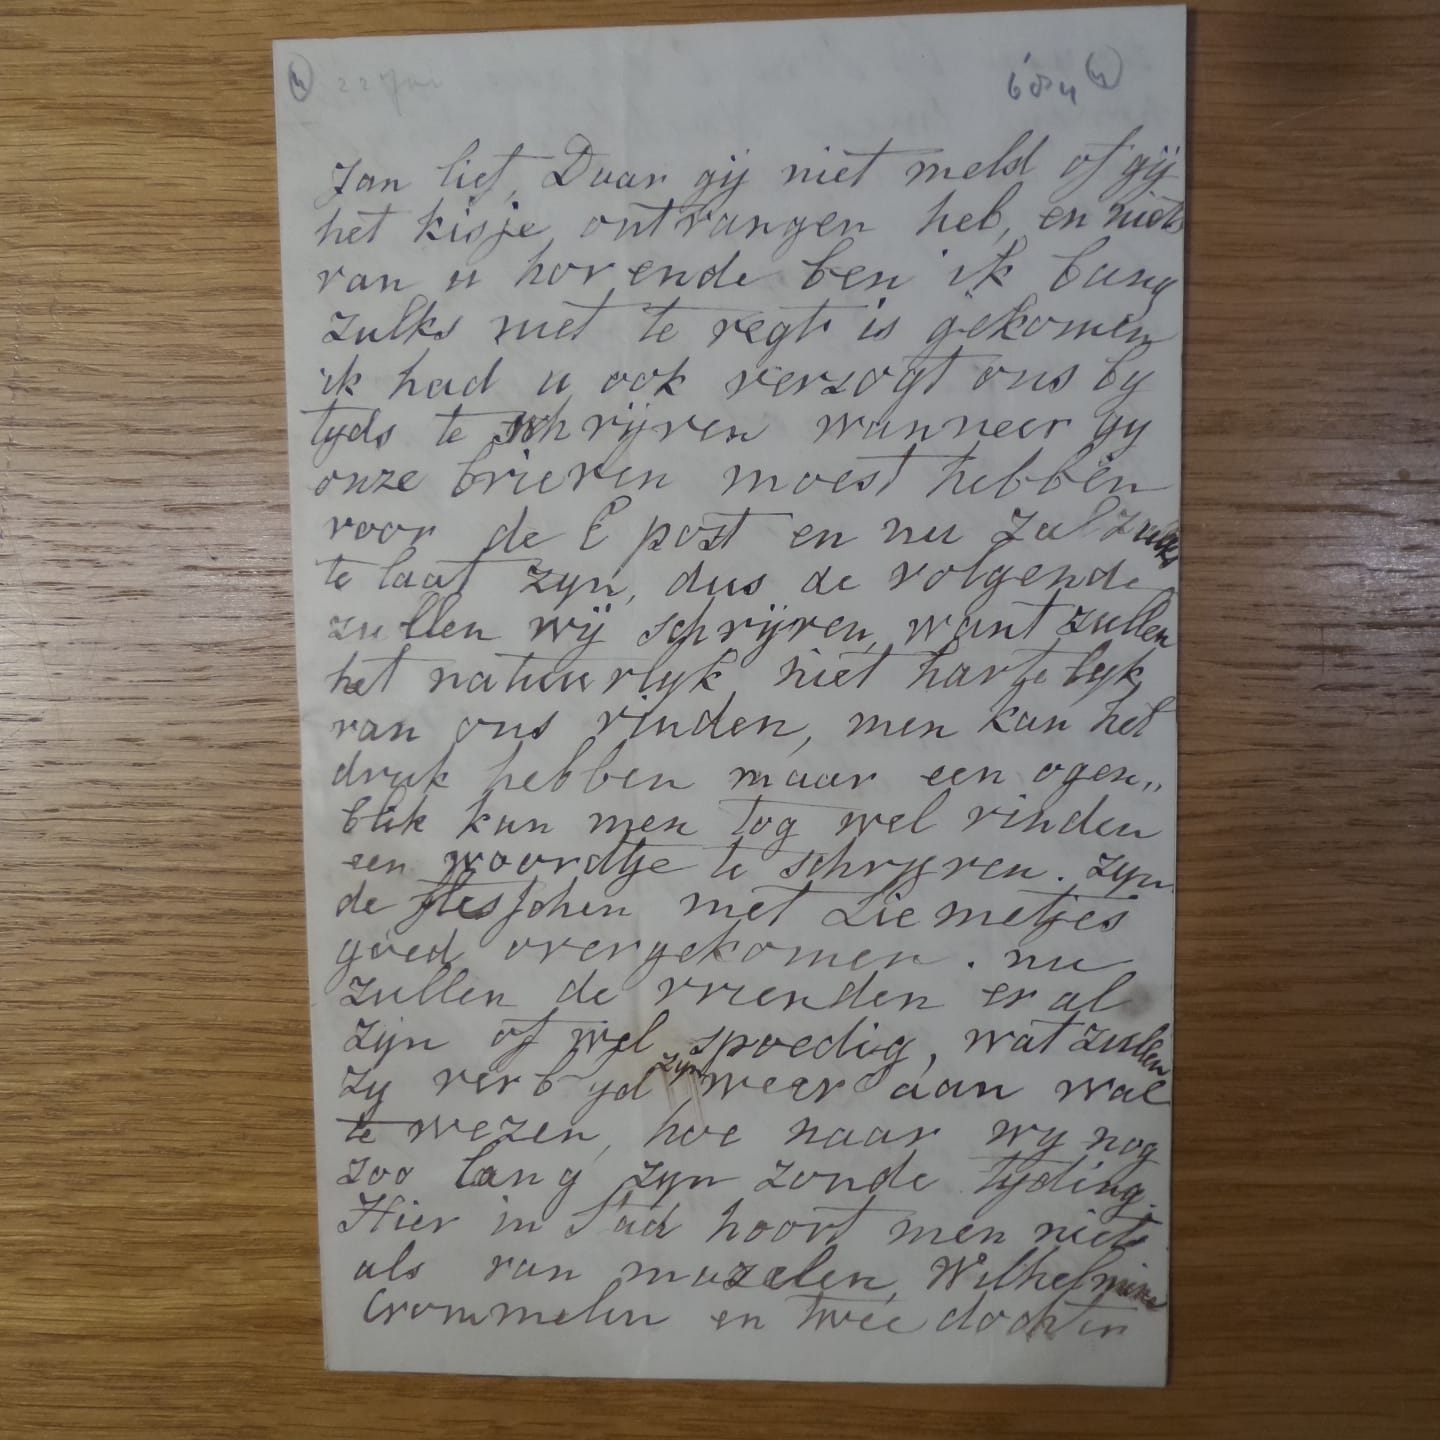 22 Jan
Jan lief, Daar gij niet meld of gij
het kisje ontvangen heb, en niets
van u horende ben ik bang
zulks niet te regt is gekomen
ik had u ook verzogt ons by
tyds te schrijven wanneer gy
onze brieven moest hebben
voor de E post en nu zal zulks
te laat zyn, dus de volgende
zullen wij schrijven, want zullen
het natuurlyk niet hartelyk
van ons vinden, men kan het
druk hebben maar een ogen„
blik kan men tog wel vinden
een woordtje te schryven. zyn
de flesschen met Liemetjes
goed overgekomen. nu
zullen de vrienden er al
zijn of wel spoedig, wat zullen
zy verblyd zyn weer aan wal
te wezen, hoe naar wy nog
zoo lang zyn zonde tyding.
Hier in Stad hoort men niets
als van mazelen, Wilhelmine
Crommelin en twee dochters